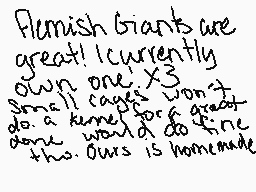 Flemish Giants are
great! I currently
own one! X3
Small cages won't
do. a kennel for a great
dane would do fine
tho. Ours is homemade